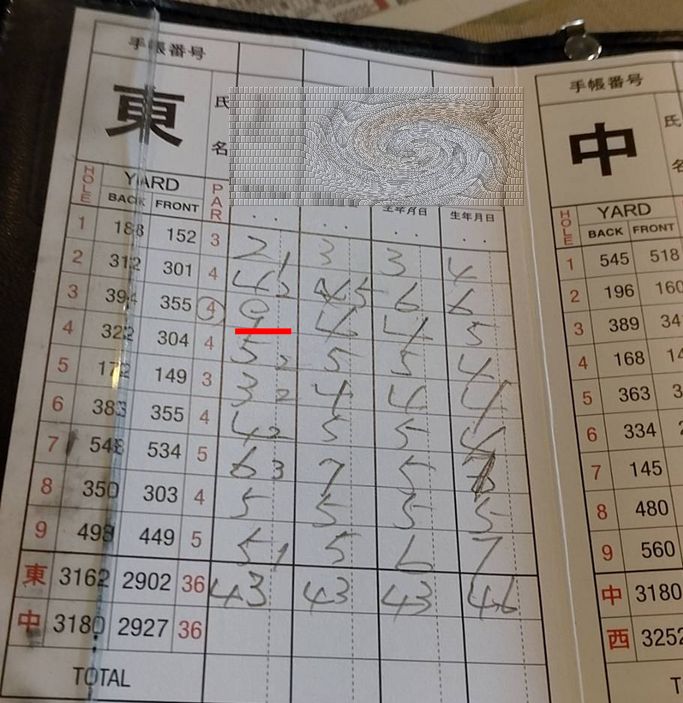 手帳番号
東
氏
名
生年月日
生年月日
HOLE YARD PAR
BACK FRONT
1 188 152 3 2 1 3 3 4
2 312 301 4 4 2 5 6 6
3 394 355 4 9 4 4 5
4 322 304 4 5 2 5 5 4
5 172 149 3 3 2 4 4 4
6 383 355 4 4 2 5 5 4
7 548 534 5 6 3 7 5 7
8 350 303 4 5 5 5 5
9 493 449 5 5 1 5 6 7
東 3162 2902 36 43 43 43 46
中 3180 2927 36
TOTAL
手帳番号
中
氏
名
HOLE YARD
BACK FRONT
1 545 518
2 196 160
3 389
4 168
5 363
6 334
7 145
8 480
9 560
中 3180
西 3252